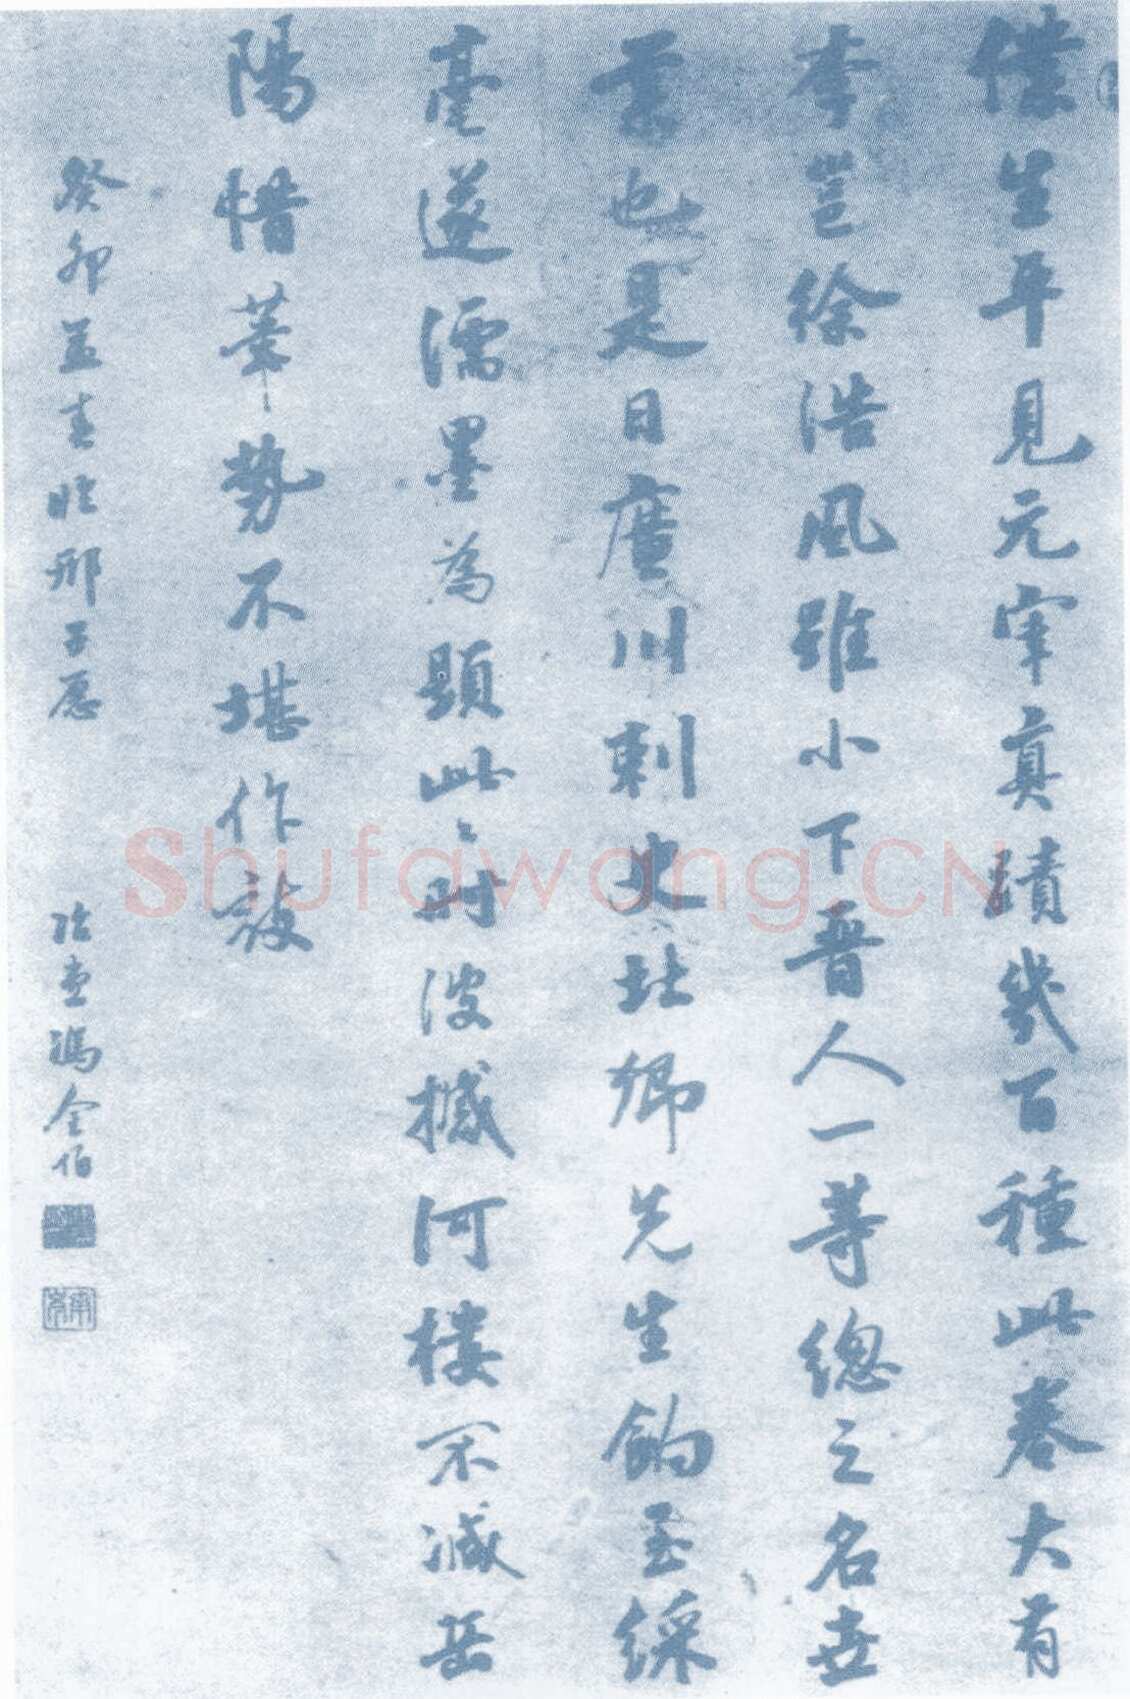 僕生平見元宰真蹟幾百種此卷大有
李豈徐浩風雖小下晉人一等總之名世
業也是日廣川刺史北鄉先生餉至綵
毫遂濡墨為題此時波撼河樓不減岳
陽惜筆勢不堪作
癸卯孟春臨邢子愿
冶堂馮金伯
Shufawang.CN